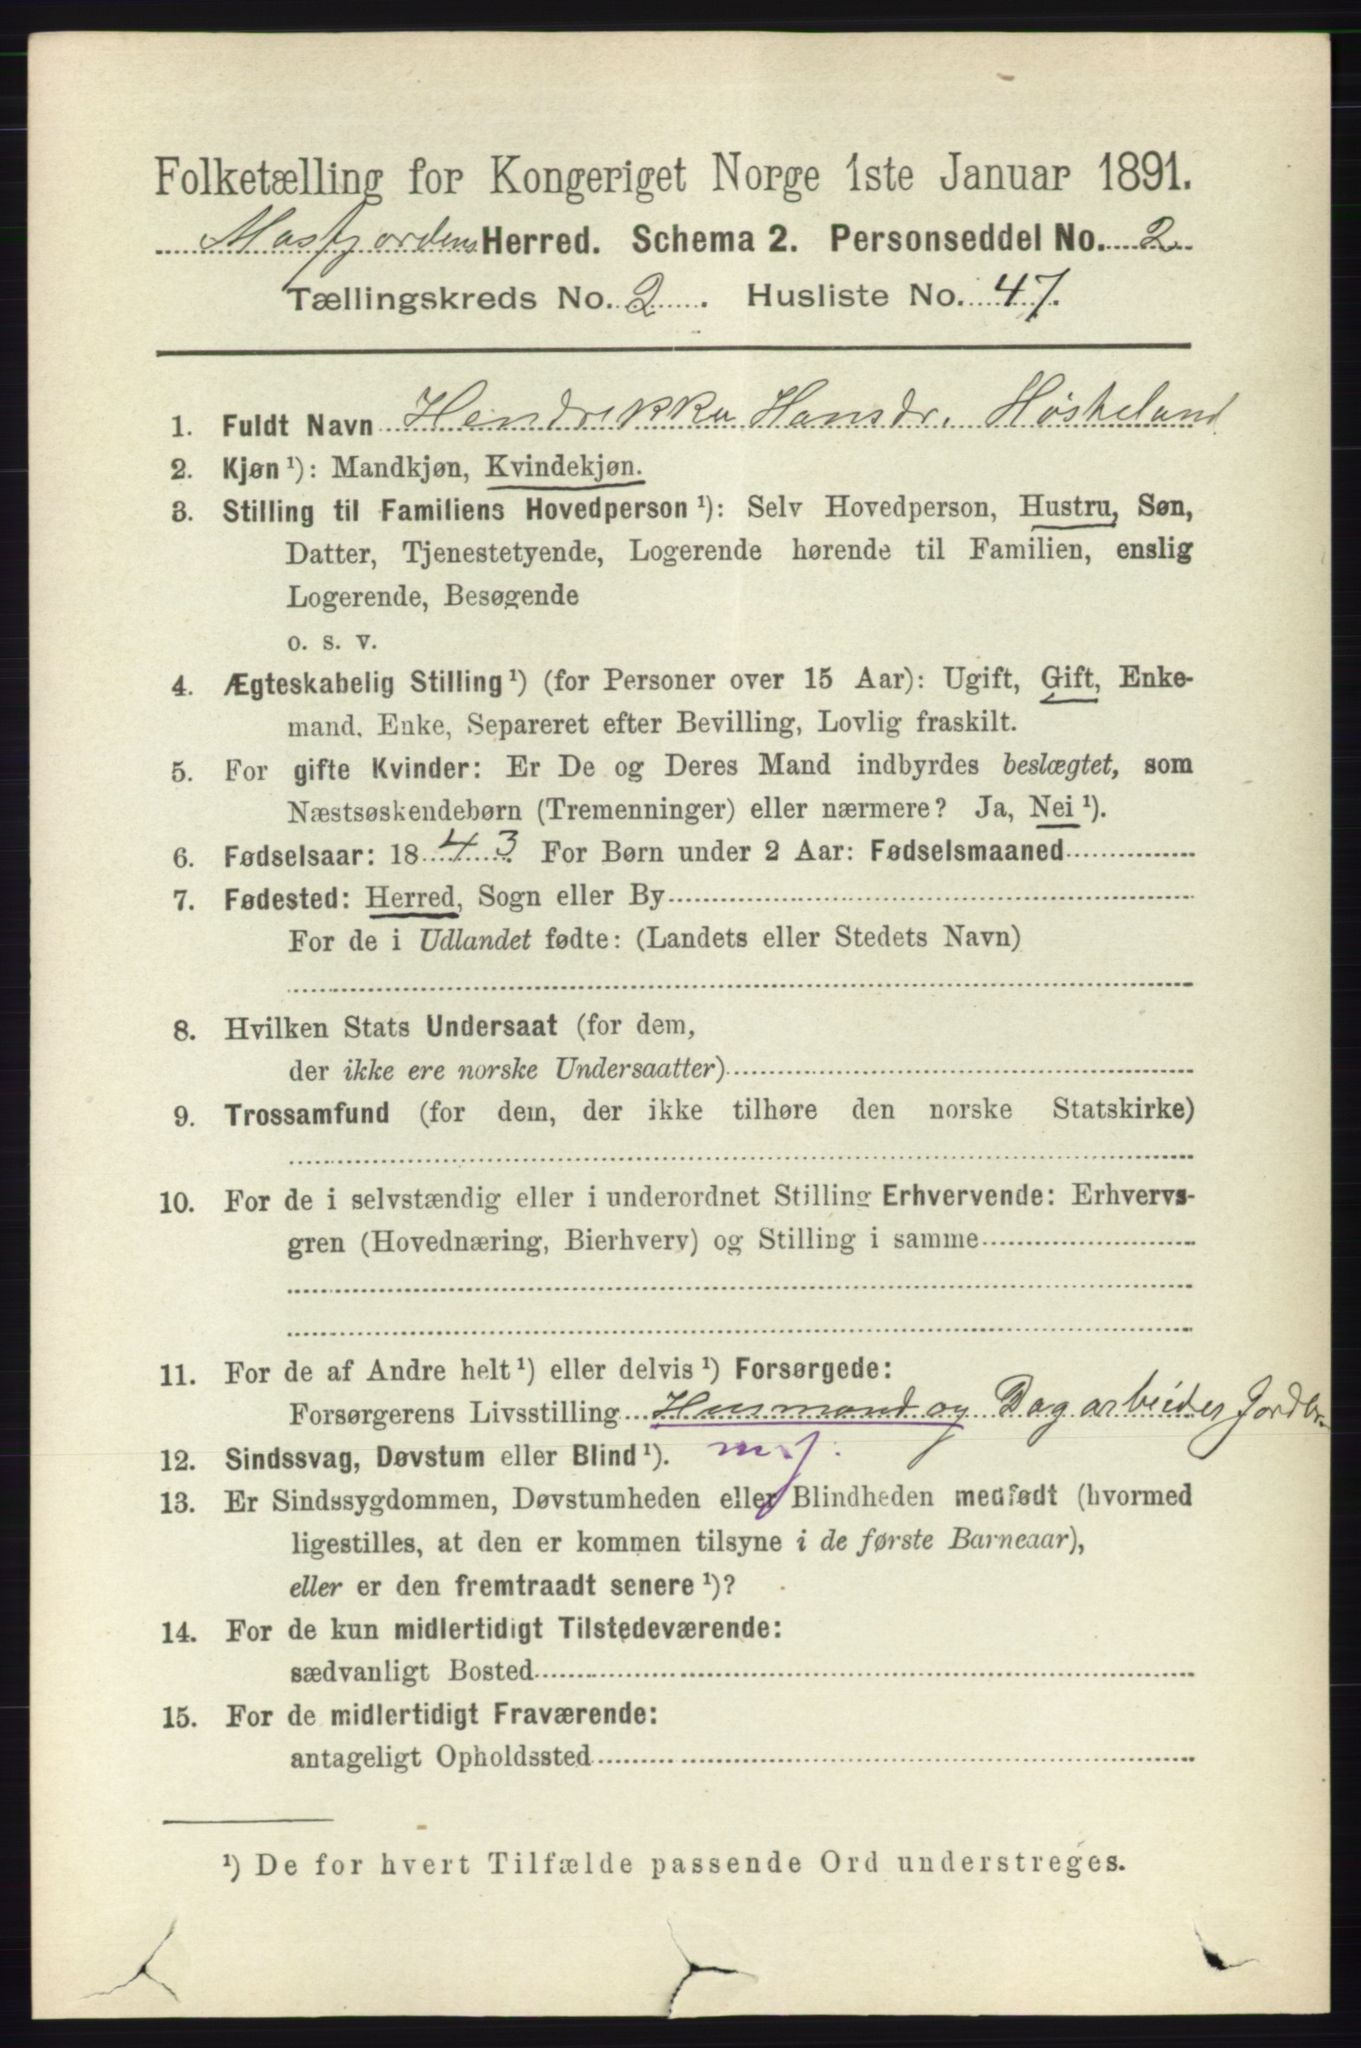 Folketælling for Kongeriget Norge 1ste Januar 1891.
Masfjordens Herred. Schema 2. Personseddel No. 2
Tællingskreds No. 2. Husliste No. 47.
1. Fuldt Navn Hendrikka Hansdr. Høskeland
2. Kjøn¹): Mandkjøn, Kvindekjøn.
3. Stilling til Familiens Hovedperson¹): Selv Hovedperson, Hustru, Søn,
Datter, Tjenestetyende, Logerende hørende til Familien, enslig
Logerende, Besøgende
o. s. v.
4. Ægteskabelig Stilling¹) (for Personer over 15 Aar): Ugift, Gift, Enke-
mand, Enke, Separeret efter Bevilling, Lovlig fraskilt.
5. For gifte Kvinder: Er De og Deres Mand indbyrdes beslægtet, som
Næstsøskendebørn (Tremenninger) eller nærmere? Ja, Nei¹).
6. Fødselsaar: 1843 For Børn under 2 Aar: Fødselsmaaned
7. Fødested: Herred, Sogn eller By
For de i Udlandet fødte: (Landets eller Stedets Navn)
8. Hvilken Stats Undersaat (for dem,
der ikke ere norske Undersaatter)
9. Trossamfund (for dem, der ikke tilhøre den norske Statskirke)
10. For de i selvstændig eller i underordnet Stilling Erhvervende: Erhvervs-
gren (Hovednæring, Bierhverv) og Stilling i samme
11. For de af Andre helt¹) eller delvis¹) Forsørgede:
Forsørgerens Livsstilling Husmand og Dagarbeider Jordbr.
m. j.
12. Sindssvag, Døvstum eller Blind¹).
13. Er Sindssygdommen, Døvstumheden eller Blindheden medfødt (hvormed
ligestilles, at den er kommen tilsyne i de første Barneaar),
eller er den fremtraadt senere¹)?
14. For de kun midlertidigt Tilstedeværende:
sædvanligt Bosted
15. For de midlertidigt Fraværende:
antageligt Opholdssted
¹) De for hvert Tilfælde passende Ord understreges.